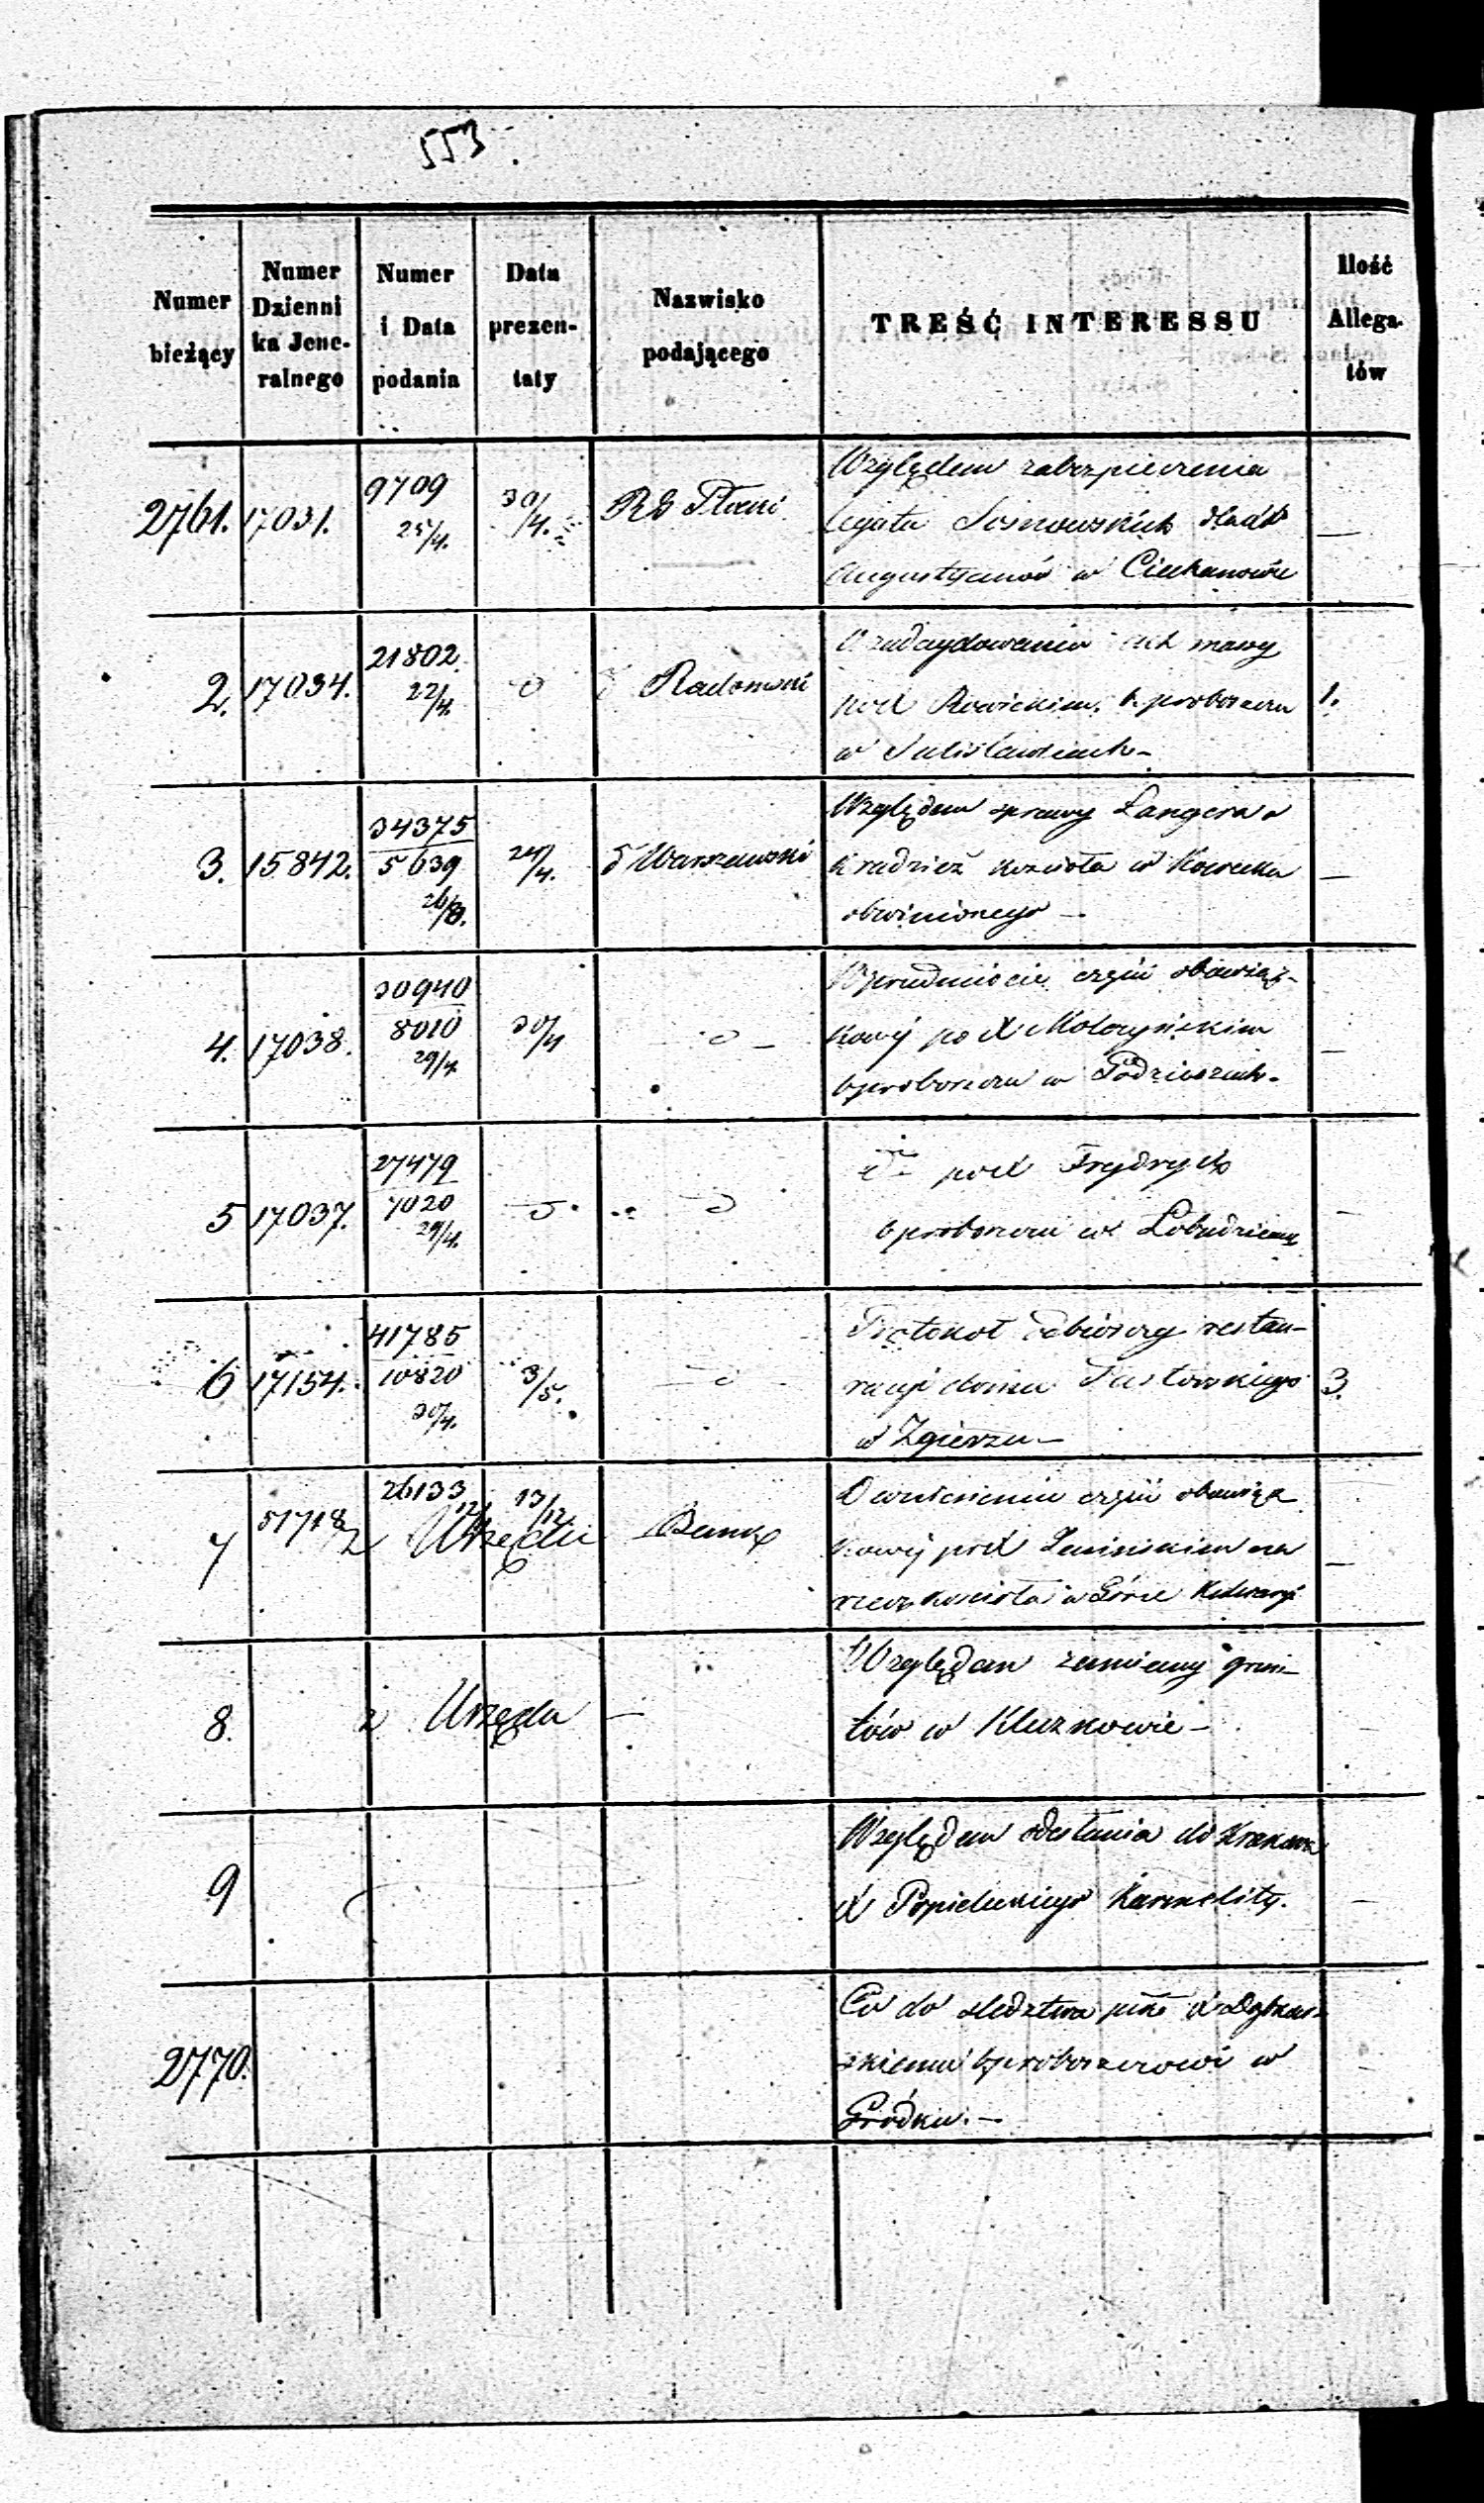 553
Numer bieżący
Numer Dzienni ka Jene- ralnego
Numer i Data podania
Data prezen- taty
Nazwisko podającego
TREŚĆ INTERESSU
Ilość Allega- tów
2761. 17031. 9709 25/4. 30/4. RG Płocki
Względem zabezpieczenia
legatu Sosnowskich dla XX
Augustyanów w Ciechanowie —
2. 17034. 21802. 22/4. d Radomski
O zadecydowanie massy
pod Rowickim b. proboszczu 1.
w Sulisławicach –
3. 15842. 34375 5639 26/3. 24/4. d Warszawski
Względem sprawy Langera o
kradzież kościoła w Kowalu —
obwinionego —
4. 17038. 30940 8010 29/4. 30/4 d —
W przedmiocie części obowiąz-
kowej po X Moloczyńskim —
b proboszczu w
5 17037. 27479 7020 29/4. d d
d po X Frydrych
b proboszczu w —
6 17154. 41785 10820 30/4. 3/5. d
Protokół odbiorczy restau-
racyi domu 3.
w Zgierzu –
7 51718/2 26133 12/ 13/12 Urzędu Banku
O wniesieniu części obowiąz
kowej po X na —
rzecz kościoła w Górze Kalwaryi
8. z Urzędu —
Względem zamiany grun-
tów w Kluznowie – —
9
Względem odesłania do Krakowa
X Popieleckiego Karmelity. —
2770.
Co do śledztwa pko X
skiemu b proboszczowi w —
Gródku. –